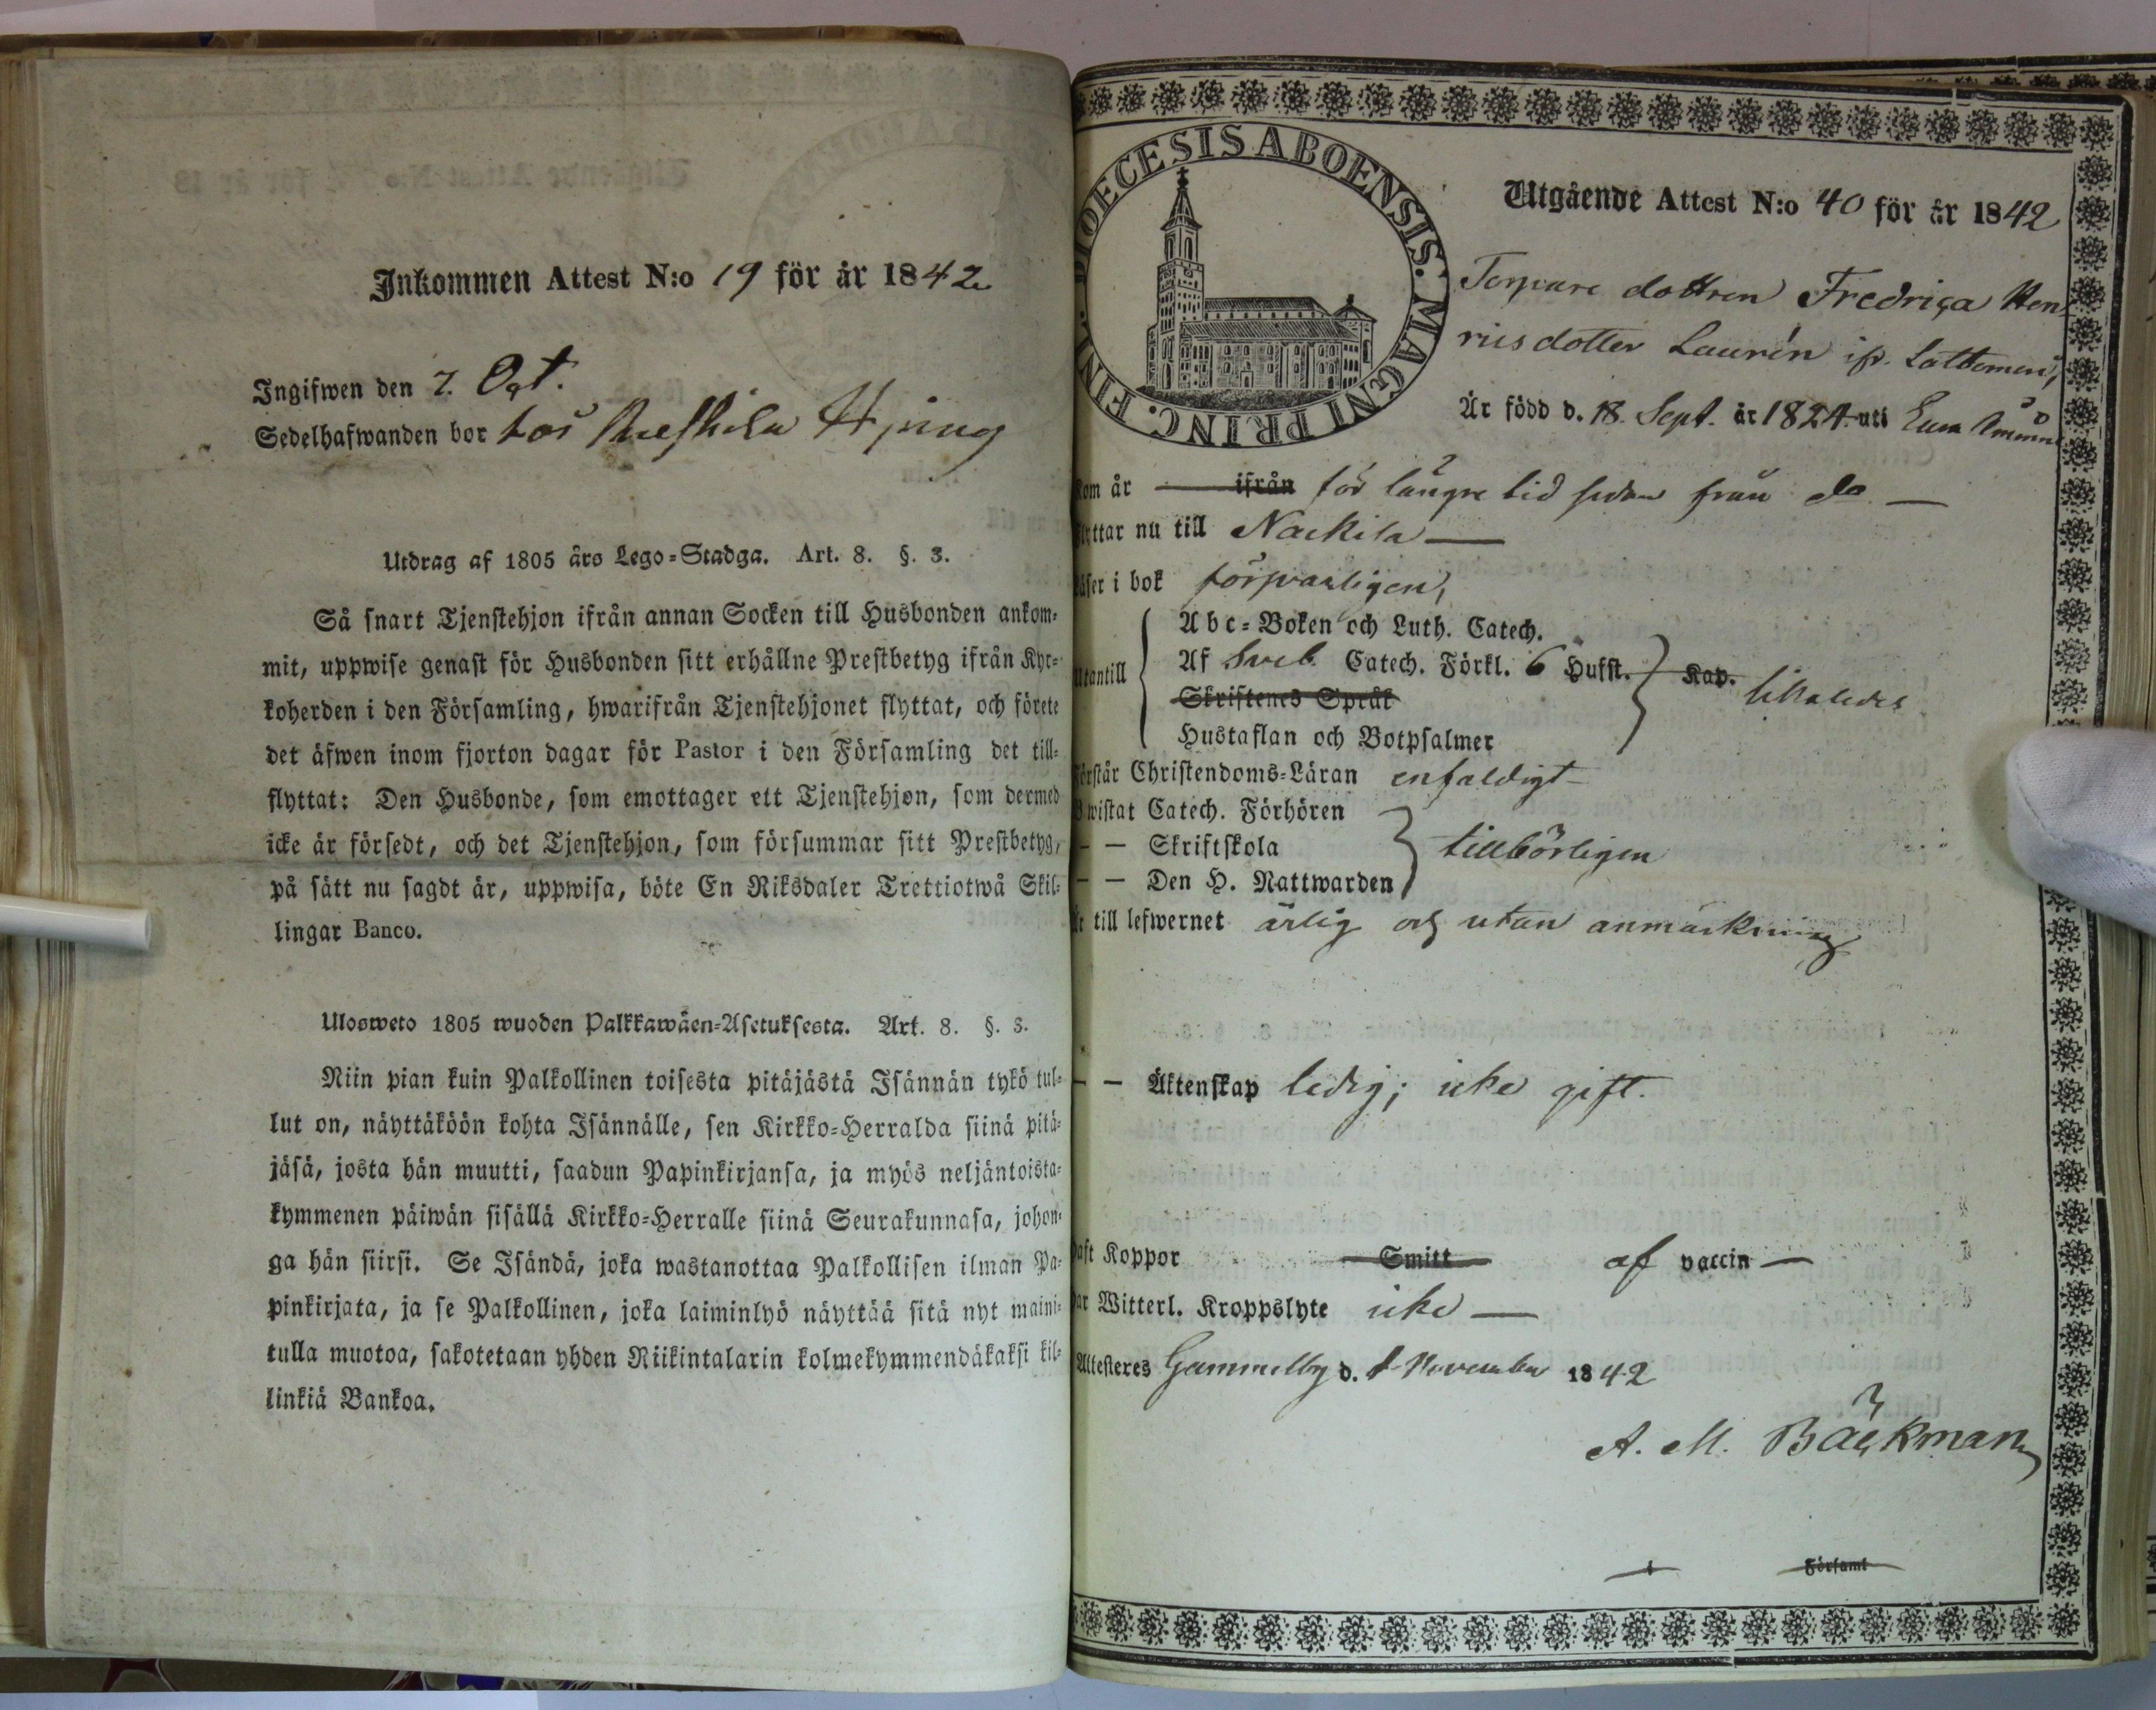 Inkommen Attest N:o 19 för år 1842
Ingifwen den 7. Oct.
Sedelhafwanden bor hos
Utdrag af 1805 års Lego-Stadga. Art. 8. §. 3.
Så snart Tjenstehjon ifrån annan Socken till Husbonden ankom-
mit, uppwise genast för Husbonden sitt erhållne Prestbetyg ifrån Kyr-
koherden i den Församling, hwarifrån Tjenstehjonet flyttat, och förete
det äfwen inom fjorton dagar för Pastor i den Församling det till-
flyttat: Den Husbonde, som emottager ett Tjenstehjon, som dermed
icke är försedt, och det Tjenstehjon, som försummar sitt Prestbetyg,
på sätt nu sagdt är, uppwisa, böte En Riksdaler Trettiotwå Skil-
lingar Banco.
Ulosweto 1805 wuoden Palkkawäen-Asetuksesta. Art. 8. §. 3.
Niin pian kuin Palkollinen toisesta pitäjästä Isännän tykö tul-
lut on, näyttäköön kohta Isännälle, sen Kirkko-Herralda siinä pitä-
jäsä, josta hän muutti, saadun Papinkirjansa, ja myös neljäntoista-
kymmenen päiwän sisällä Kirkko-Herralle siinä Seurakunnasa, johon-
ga hän siirsi. Se Isändä, joka wastanottaa Palkollisen ilman Pa-
pinkirjata, ja se Palkollinen, joka laiminlyö näyttää sitä nyt maini-
tulla muotoa, sakotetaan yhden Riikintalarin kolmekymmendäkaksi kil-
linkiä Bankoa.
DIOECESIS ABOENSIS. MAGNI PRINC. FINL.
Utgående Attest N:o 40 för år 1842
Torpare dottren Fredrica Hen
ricsdotter Laurén ifr. Lattomeri,
Är född d. 18. Sept. år 1824 uti Eura
kom år — ifrån för längre tid sedan från do —
flyttar nu till Nackila —
läser i bok förswarligen,
Abc-Boken och Luth. Catech.
utantill Af Sveb. Catech. Förkl. 6 Hufst. Kap. likaledes
Skriftenes Språk
Hustaflan och Botpsalmer
Förstår Christendoms-Läran enfaldigt
Bwistat Catech. Förhören
— — Skriftskola tillbörligen
— — Den H. Nattwarden
Är till lefwernet ärlig och utan anmärkning
— — Äktenskap ledig; icke gift.
haft Koppor Smitt af vaccin —
har Witterl. Kroppslyte icke —
Attesteres Gammelby d. 1 November 1842
A. M. Bäckman
Församl